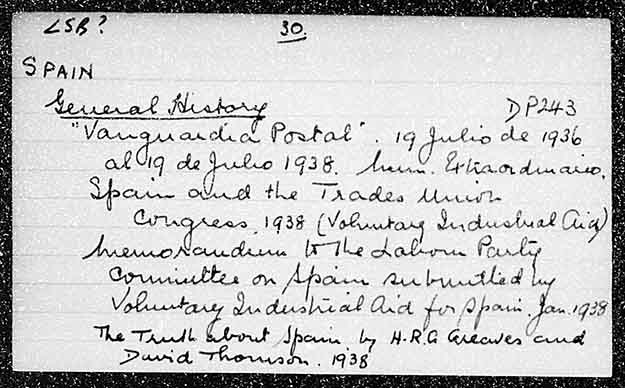 LSB? 30.
SPAIN
General History DP243
"Vanguardia Postal". 19 Julio de 1936
al 19 de Julio 1938. Num. Extraordinario.
Spain and the Trades Union
Congress, 1938 (Voluntary Industrial Aid)
Memorandum to the Labour Party
Committee on Spain submitted by
Voluntary Industrial Aid for Spain. Jan. 1938
The Truth about Spain. by H.R.G Greaves and
David Thomson. 1938